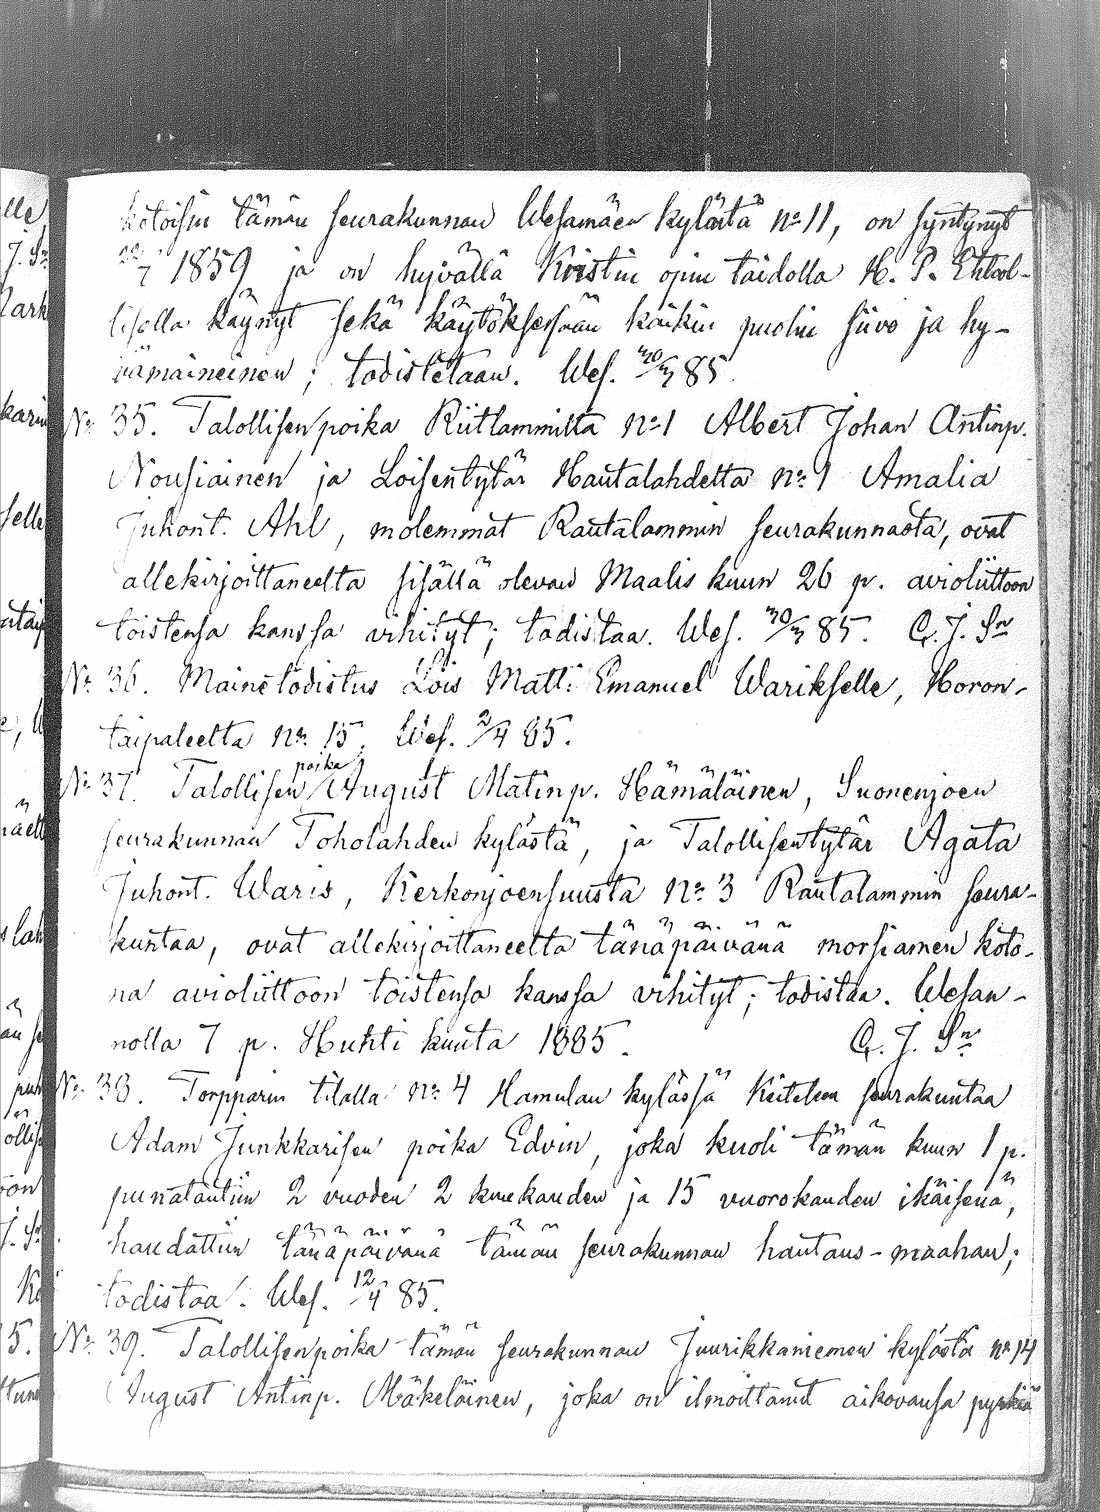 kotoisin tämän seurakunnan Wesamäen kylästä nº 11, on syntynyt
22/7 1859 ja on hyvällä Kristin opin taidolla H. P. Ehtool-
lisella käynyt sekä käytöksessään kaikin puolin siivo ja hy-
vämaineinen; todistetaan. Wes. 30/3 85.
Nº 35. Talollisen poika Riitlammilta nº 1 Albert Johan Antinp.
Nousiainen ja Loisentytär Hautalahdelta nº 1 Amalia
Juhont. Ahl, molemmat Rautalammin seurakunnasta, ovat
allekirjoittaneelta sisällä olevan Maalis kuun 26 p. avioliittoon
toistensa kanssa vihityt; todistaa. Wes. 30/3 85. C. J. Sn
Nº 36. Mainetodistus Lois Matti Emanuel Warikselle, Horon-
taipaleelta nº 15. Wes. 2/4 85.
poika
Nº 37. Talollisen August Matinp. Hämäläinen, Suonenjoen
seurakunnan Toholahden kylästä, ja Talollisentytär Agata
Juhont. Waris, Kerkonjoensuusta nº 3 Rautalammin seura-
kuntaa, ovat allekirjoittaneelta tänäpäivänä morsiamen koto-
na avioliittoon toistensa kanssa vihityt; todistaa. Wesan-
nolla 7 p. Huhti kuuta 1885. C. J. Sn
Nº 38. Torpparin tilalla nº 4 Hamulan kylässä Keiteleen seurakuntaa
Adam Junkkarisen poika Edvin, joka kuoli tämän kuun 1 p.
punatautiin 2 vuoden 2 kuukauden ja 15 vuorokauden ikäisenä,
haudattiin tänäpäivänä tämän seurakunnan hautaus-maahan;
todistaa. Wes. 12/4 85.
Nº 39. Talollisenpoika tämän seurakunnan Juurikkaniemen kylästä nº 14
August Antinp. Mäkeläinen, joka on ilmoittanut aikovansa pyrkiä